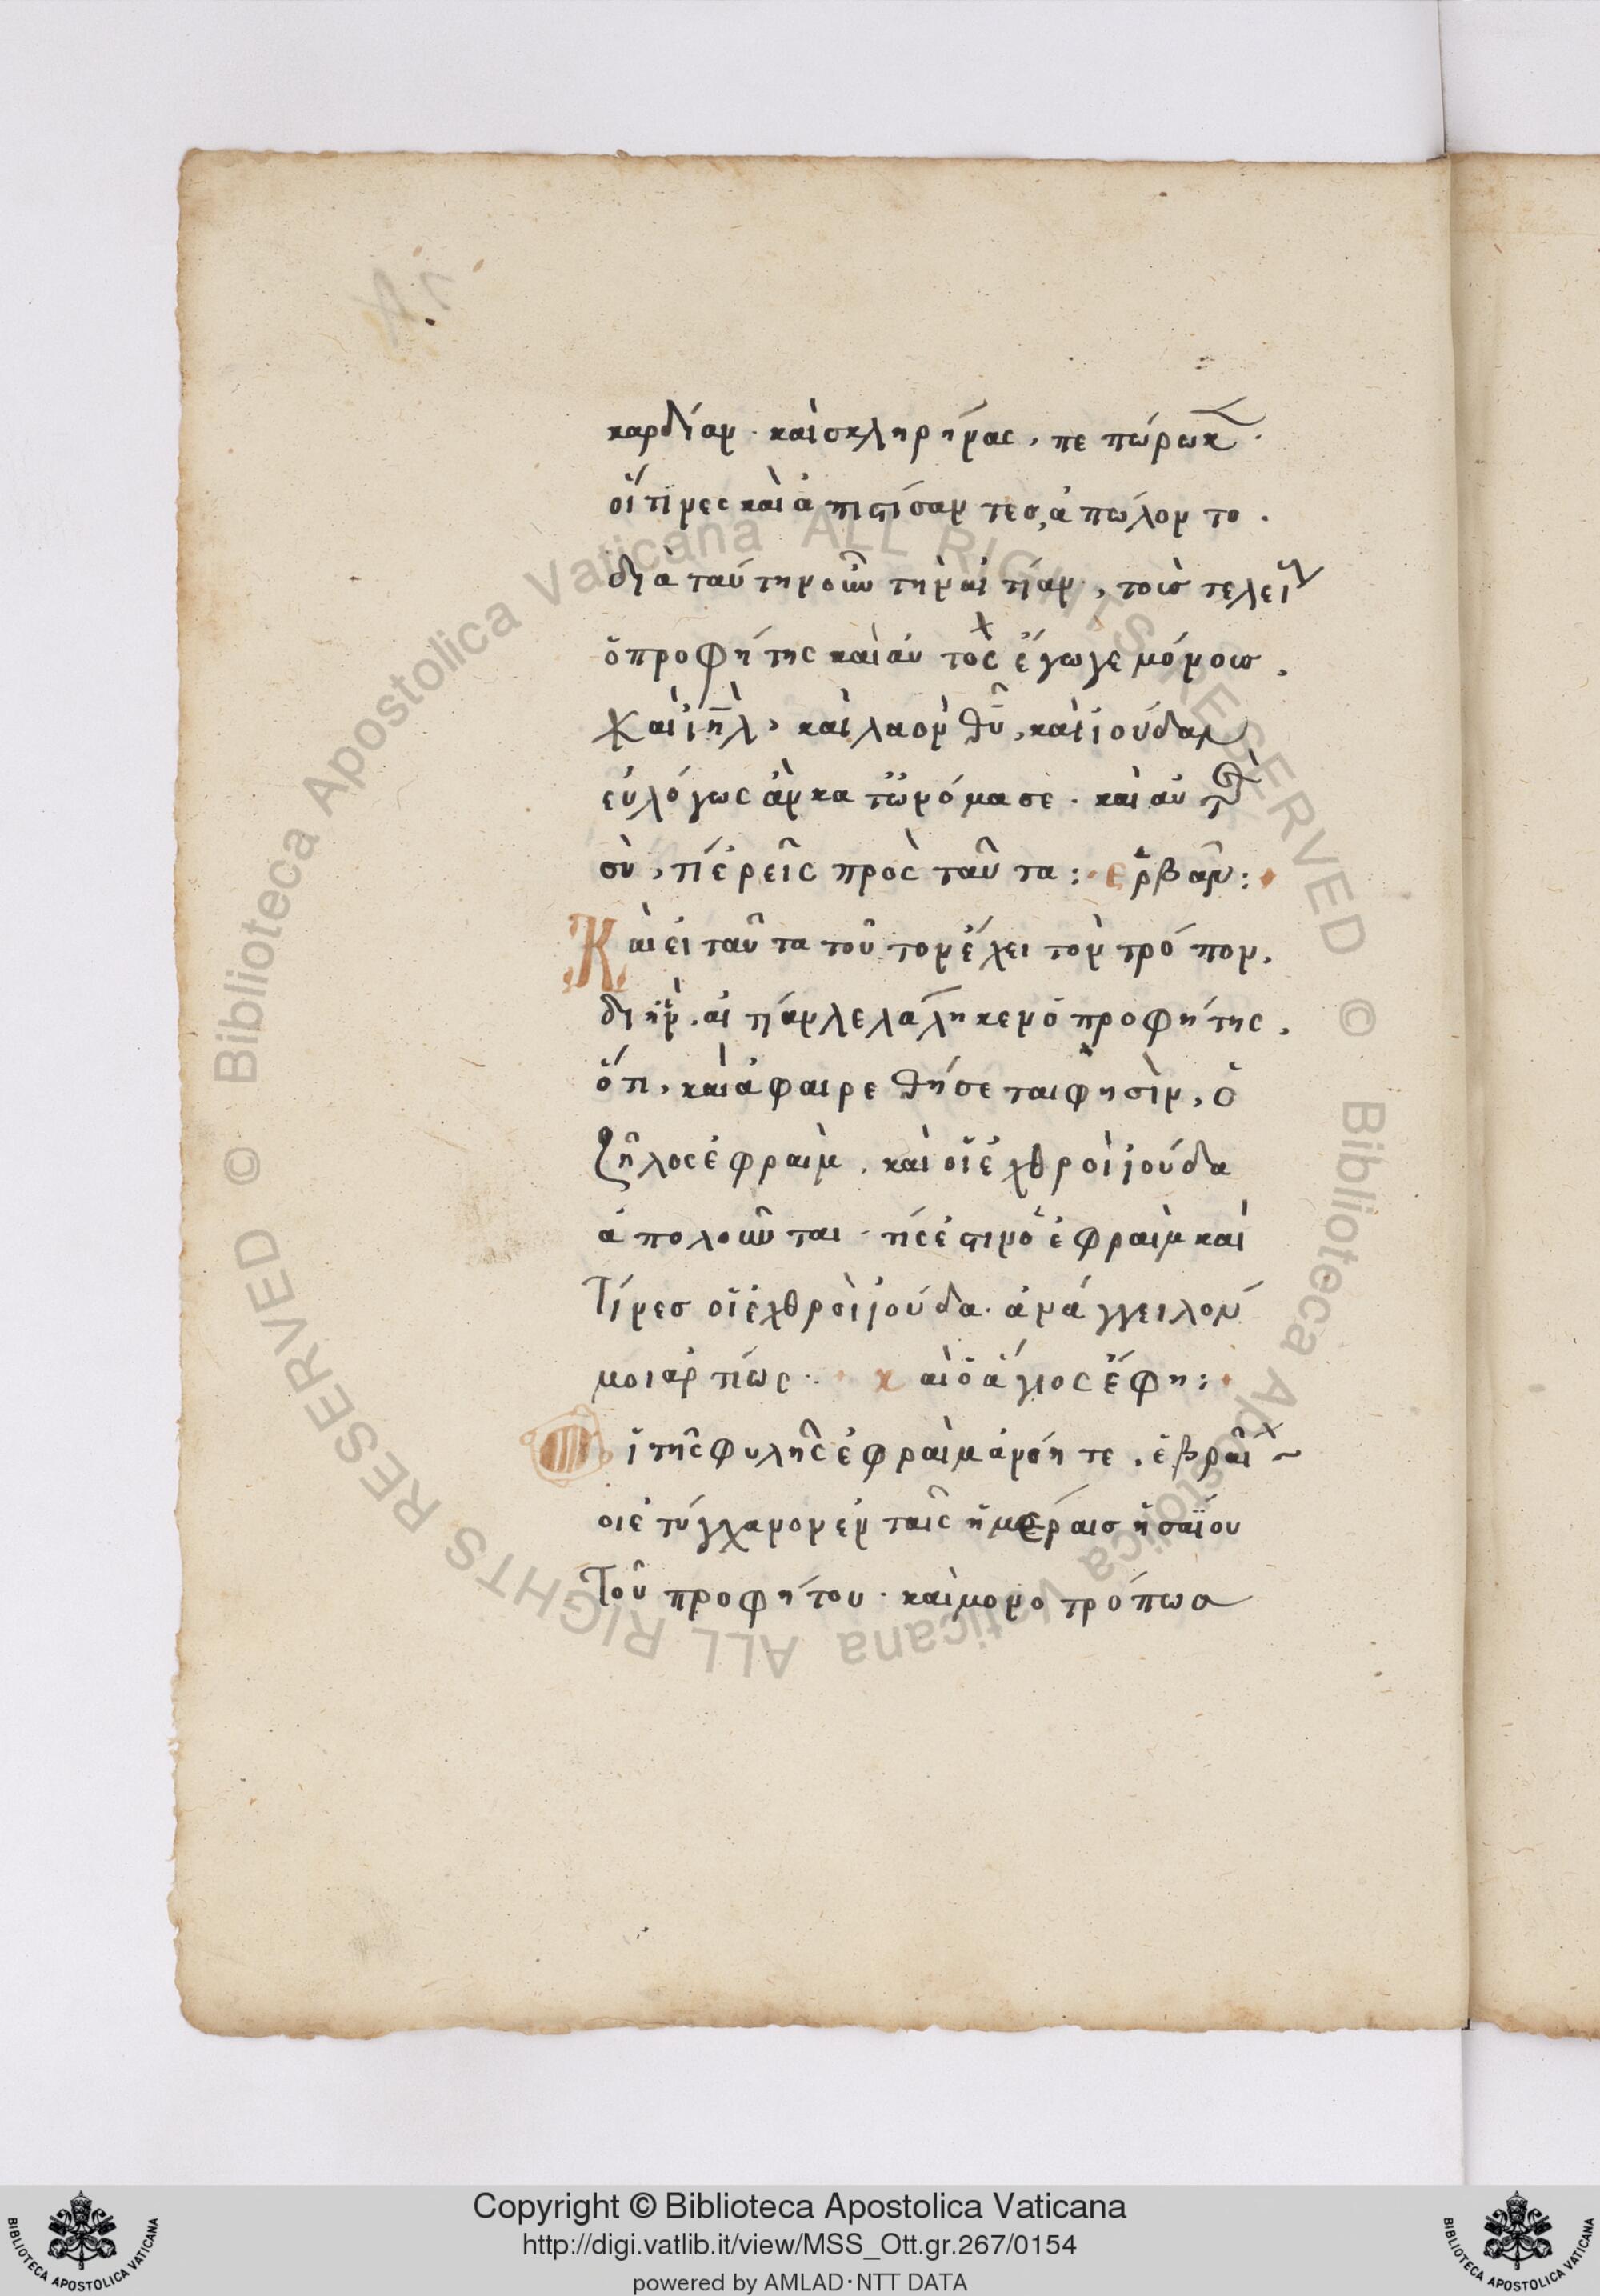 καρδίαν · καὶ σκληρύνας, πεπώρωκ ·
οἵτινες καὶ ἀπιστίσαντες, ἀπώλοντο ·
διὰ ταύτην οὖν τὴν αἰτίαν, τοῖσ τελεί
ὁ προφήτης καὶ αὐτὸς ἔγωγε μόνοισ,
καὶ ιηλ, καὶ λαὸν θυ, καὶ ϊούδαν
εὐλόγως ἀνκατωνόμασε · καὶ αὐτ
σὺ, τί ἐρεῖς πρὸς ταῦτα : ἐρβάν :
Καὶ εἰ ταῦτα τοῦτον ἔχει τὸν τρόπον,
δι ἣν αἰτίαν λελάληκεν ὁ προφήτης,
ὅτι, καὶ ἀφαιρεθήσεται φησὶν, ὁ
ζῆλος ἐφραὶμ, καὶ οἱ ἐχθροὶ ϊούδα
ἀπολοῦνται · τίς ἐστιν ὁ ἐφραὶμ καὶ
τίνεσ οἱ ἐχθροὶ ϊούδα · ἀνάγγειλον
μοι ἀρτίως · καὶ ὁ ἅγιος ἔφη :
Οἱ τῆς φυλῆς ἐφραὶμ ἀνόητε, ἑβραῖ
οι ἐτύγχανον ἐν ταῖς ἡμέραισ ἡσαΐου
τοῦ προφήτου · καὶ μονοτρόπωσ
Copyright © Biblioteca Apostolica Vaticana
http://digi.vatlib.it/view/MSS_Ott.gr.267/0154
powered by AMLAD·NTT DATA
BIBLIOTECA APOSTOLICA VATICANA
BIBLIOTECA APOSTOLICA VATICANA
© Biblioteca Apostolica Vaticana ALL RIGHTS RESERVED © Biblioteca Apostolica Vaticana ALL RIGHTS RESERVED